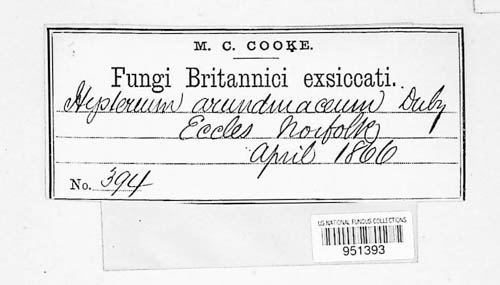 M. C. COOKE.
Fungi Britannici exsiccati.
Hysterium arundinaceum Duby
Eccles Norfolk
April 1866
No. 394
US NATIONAL FUNGUS COLLECTIONS
951393